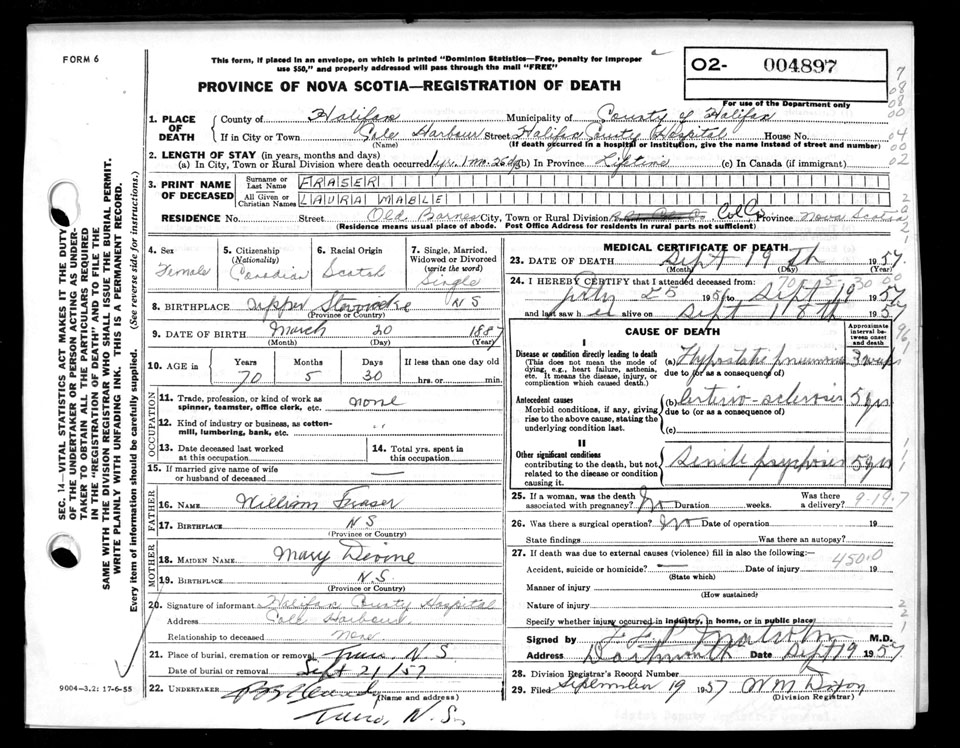 FORM 6
This form, if placed in an envelope, on which is printed "Dominion Statistics—Free, penalty for improper
use $50," and properly addressed will pass through the mail "FREE"
PROVINCE OF NOVA SCOTIA—REGISTRATION OF DEATH
O2- 004897
For use of the Department only
1. PLACE OF DEATH
County of Halifax Municipality of County of Halifax
If in City or Town Cole Harbour Street Halifax County Hospital House No.
(Name) (If death occurred in a hospital or institution, give the name instead of street and number)
2. LENGTH OF STAY (in years, months and days)
(a) In City, Town or Rural Division where death occurred 1 yr. 1 mo. 26 d (b) In Province Lifetime (c) In Canada (if immigrant)
3. PRINT NAME OF DECEASED
Surname or Last Name FRASER
All Given or Christian Names LAURA MABLE
RESIDENCE No. Street Old Barnes City, Town or Rural Division Col Co Province Nova Scotia
(Residence means usual place of abode. Post Office Address for residents in rural parts not sufficient)
4. Sex Female
5. Citizenship (Nationality) Canadian
6. Racial Origin Scotch
7. Single, Married, Widowed or Divorced (write the word) Single
8. BIRTHPLACE Upper Stewiacke N S
(Province or Country)
9. DATE OF BIRTH March 20 1887
(Month) (Day) (Year)
10. AGE in Years Months Days If less than one day old
70 5 30 hrs. or min.
OCCUPATION
11. Trade, profession, or kind of work as spinner, teamster, office clerk, etc. none
12. Kind of industry or business, as cotton-mill, lumbering, bank, etc. "
13. Date deceased last worked at this occupation
14. Total yrs. spent in this occupation
15. If married give name of wife or husband of deceased —
FATHER
16. NAME William Fraser
17. BIRTHPLACE N S
(Province or Country)
MOTHER
18. MAIDEN NAME Mary Devine
19. BIRTHPLACE N.S.
(Province or Country)
20. Signature of informant Halifax County Hospital
Address Cole Harbour
Relationship to deceased None
21. Place of burial, cremation or removal Truro N.S
Date of burial or removal Sept 21/57
22. UNDERTAKER
(Name and address)
Truro, N.S.
MEDICAL CERTIFICATE OF DEATH
23. DATE OF DEATH Sept 19 th 1957
(Month) (Day) (Year)
24. I HEREBY CERTIFY that I attended deceased from
July 25 1956 to Sept 19 1957
and last saw h er alive on Sept 18th 1957
CAUSE OF DEATH
Approximate interval between onset and death
I
Disease or condition directly leading to death
(This does not mean the mode of dying, e.g., heart failure, asthenia, etc. It means the disease, injury, or complication which caused death.)
(a) Hypostatic pneumonia 3 days
due to (or as a consequence of)
Antecedent causes
Morbid conditions, if any, giving rise to the above cause, stating the underlying condition last.
(b) Arterio-sclerosis 5 yrs
due to (or as a consequence of)
(c)
II
Other significant conditions
contributing to the death, but not related to the disease or condition causing it.
Senile psychosis 5 yrs
25. If a woman, was the death associated with pregnancy? No Duration weeks. Was there a delivery?
9-19-7
26. Was there a surgical operation? No Date of operation 19
State findings Was there an autopsy?
27. If death was due to external causes (violence) fill in also the following:—
450.0
Accident, suicide or homicide? — Date of injury 19
(State which)
Manner of injury
(How sustained)
Nature of injury
Specify whether injury occurred in industry, in home, or in public place
Signed by Malcolm M.D.
Address Dartmouth Date Sept 19 1957
28. Division Registrar's Record Number
29. Filed September 19 1957 W M Dixon
(Division Registrar)
SEC. 14—VITAL STATISTICS ACT MAKES IT THE DUTY
OF THE UNDERTAKER OR PERSON ACTING AS UNDER-
TAKER TO OBTAIN ALL THE PARTICULARS REQUIRED
IN THE "REGISTRATION OF DEATH" AND TO FILE THE
SAME WITH THE DIVISION REGISTRAR WHO SHALL ISSUE THE BURIAL PERMIT.
WRITE PLAINLY WITH UNFADING INK. THIS IS A PERMANENT RECORD.
Every item of information should be carefully supplied. (See reverse side for instructions.)
9004-3.2: 17-6-55